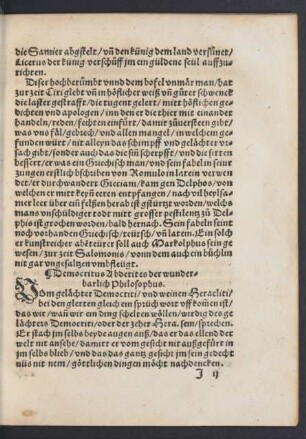 die Samier abgstelt/ vñ den künig dem land versünet/
Licerus der künig verschüff jm ein güldene seül auffzů-
richten.
Diser hochberůmbt vnnd dem bofel vnmär man/ hat
zur zeit Ciri gelebt vñ in höflicher weiß vñ gůter schwenck
die laster gestrafft/ die tugent gelert/ mitt höflichen ge-
dichten vnd apologen/ inn den er die thier mit einander
handeln/ reden/ fechten einfürt/ damit zůuersteen gibt/
was vns fäl/ gebrech/ vnd allen mangel/ in welchem ge-
funden würt/ nit alleyn das schimpff vnd gelächter vr-
sach gibt/ sonder auch das die siñ scherpfft/ vnd die sitten
bessert/ er was ein Griechisch man/ vnd sein fabeln seinr
zungen erstlich bschriben von Romulo in latein verwen
det/ er durchwandert Greciam/ kam gen Delphos/ von
welchen er mitt kleynē eren entpfangen/ nach vil beylsa-
mer leer über ein felßen herab ist gstürtzt worden/ welchs
mans vnschildiger todt mitt grosser pestilentz zů Del-
phis ist grochen worden/ bald hernach. Sein fabeln seind
noch vorhanden Griechisch/ teütsch/ vñ latein. Ein solch
er kunstreicher abēteürer soll auch Markolphus sein ge
wesen/ zur zeit Salomonis/ von dem auch ein büchlin
nit gar vngesaltzen vmbfleügt.
¶ Democritus Abderites der wunder-
barlich Philosophus.
Vom gelächter Democriti/ vnd weinen Heracliti/
bei den glerten gleich ein sprüchwort vffkom̃en ist/
das wir/ wañ wir ein ding schelten wöllen/ wirdig des ge
lächters Democriti/ oder der zeher Hera. sein/ sprechen.
Er stach jm selbs beyde augen auß/ das er das ellend der
welt nit ansehe/ damit er vom gesicht nit außgefürt in
jm selbs blieb/ vnd das das gantz gesicht jm sein gedecht
nüs nit nem/ göttlichen dingen möcht nachdencken.
J ij